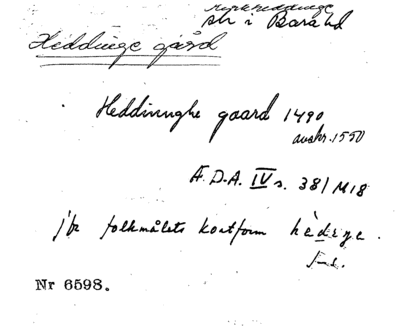 Kyrkheddinge
sn i Bara hd
Heddinge gård
Heddinnghe gaard 1490
avskr. 1550
Æ.D.A. IV s. 38/ M18
jfr folkmålets kortform hèdiŋe.
Nr 6598.